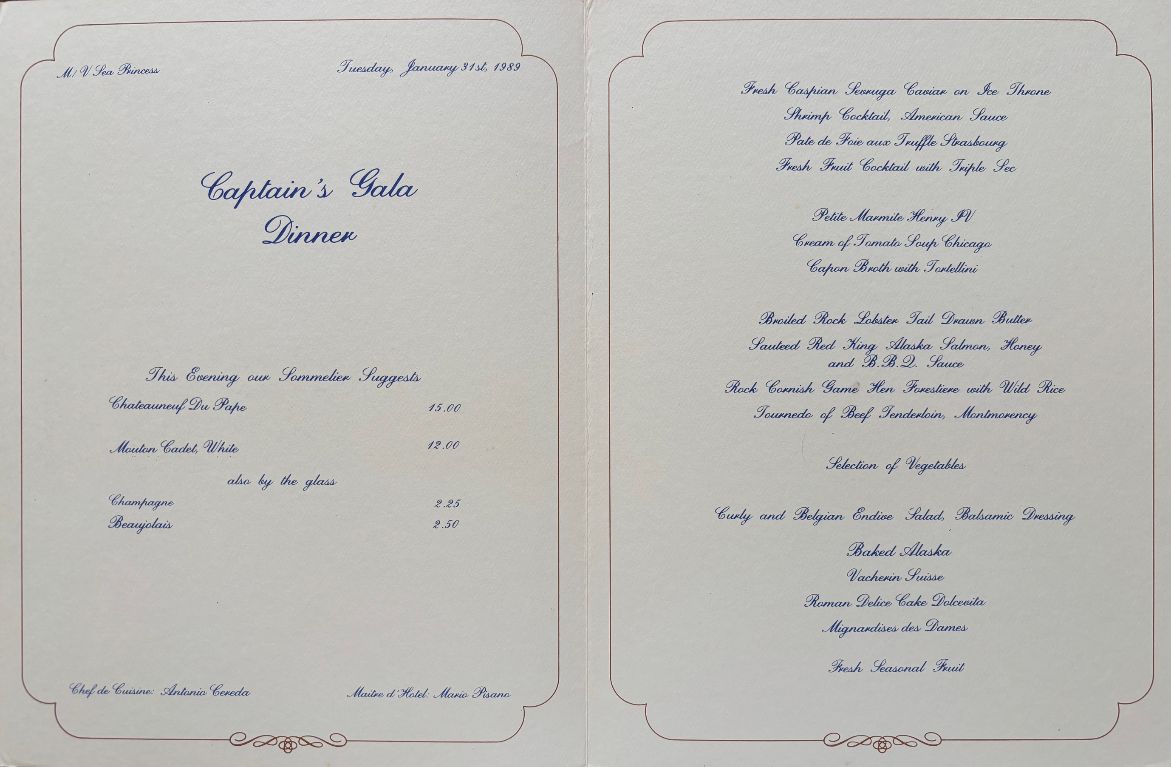 M/V Sea Princess
Tuesday, January 31st, 1989
Captain's Gala
Dinner
This Evening our Sommelier Suggests
Chateauneuf Du Pape 15.00
Mouton Cadet, White 12.00
also by the glass
Champagne 2.25
Beaujolais 2.50
Chef de Cuisine: Antonio Cereda
Maitre d'Hotel: Mario Pisano
Fresh Caspian Sevruga Caviar on Ice Throne
Shrimp Cocktail, American Sauce
Pate de Foie aux Truffle Strasbourg
Fresh Fruit Cocktail with Triple Sec
Petite Marmite Henry IV
Cream of Tomato Soup Chicago
Capon Broth with Tortellini
Broiled Rock Lobster Tail Drawn Butter
Sauteed Red King Alaska Salmon, Honey
and B.B.Q. Sauce
Rock Cornish Game Hen Forestiere with Wild Rice
Tournedo of Beef Tenderloin, Montmorency
Selection of Vegetables
Curly and Belgian Endive Salad, Balsamic Dressing
Baked Alaska
Vacherin Suisse
Roman Delice Cake Dolcevita
Mignardises des Dames
Fresh Seasonal Fruit